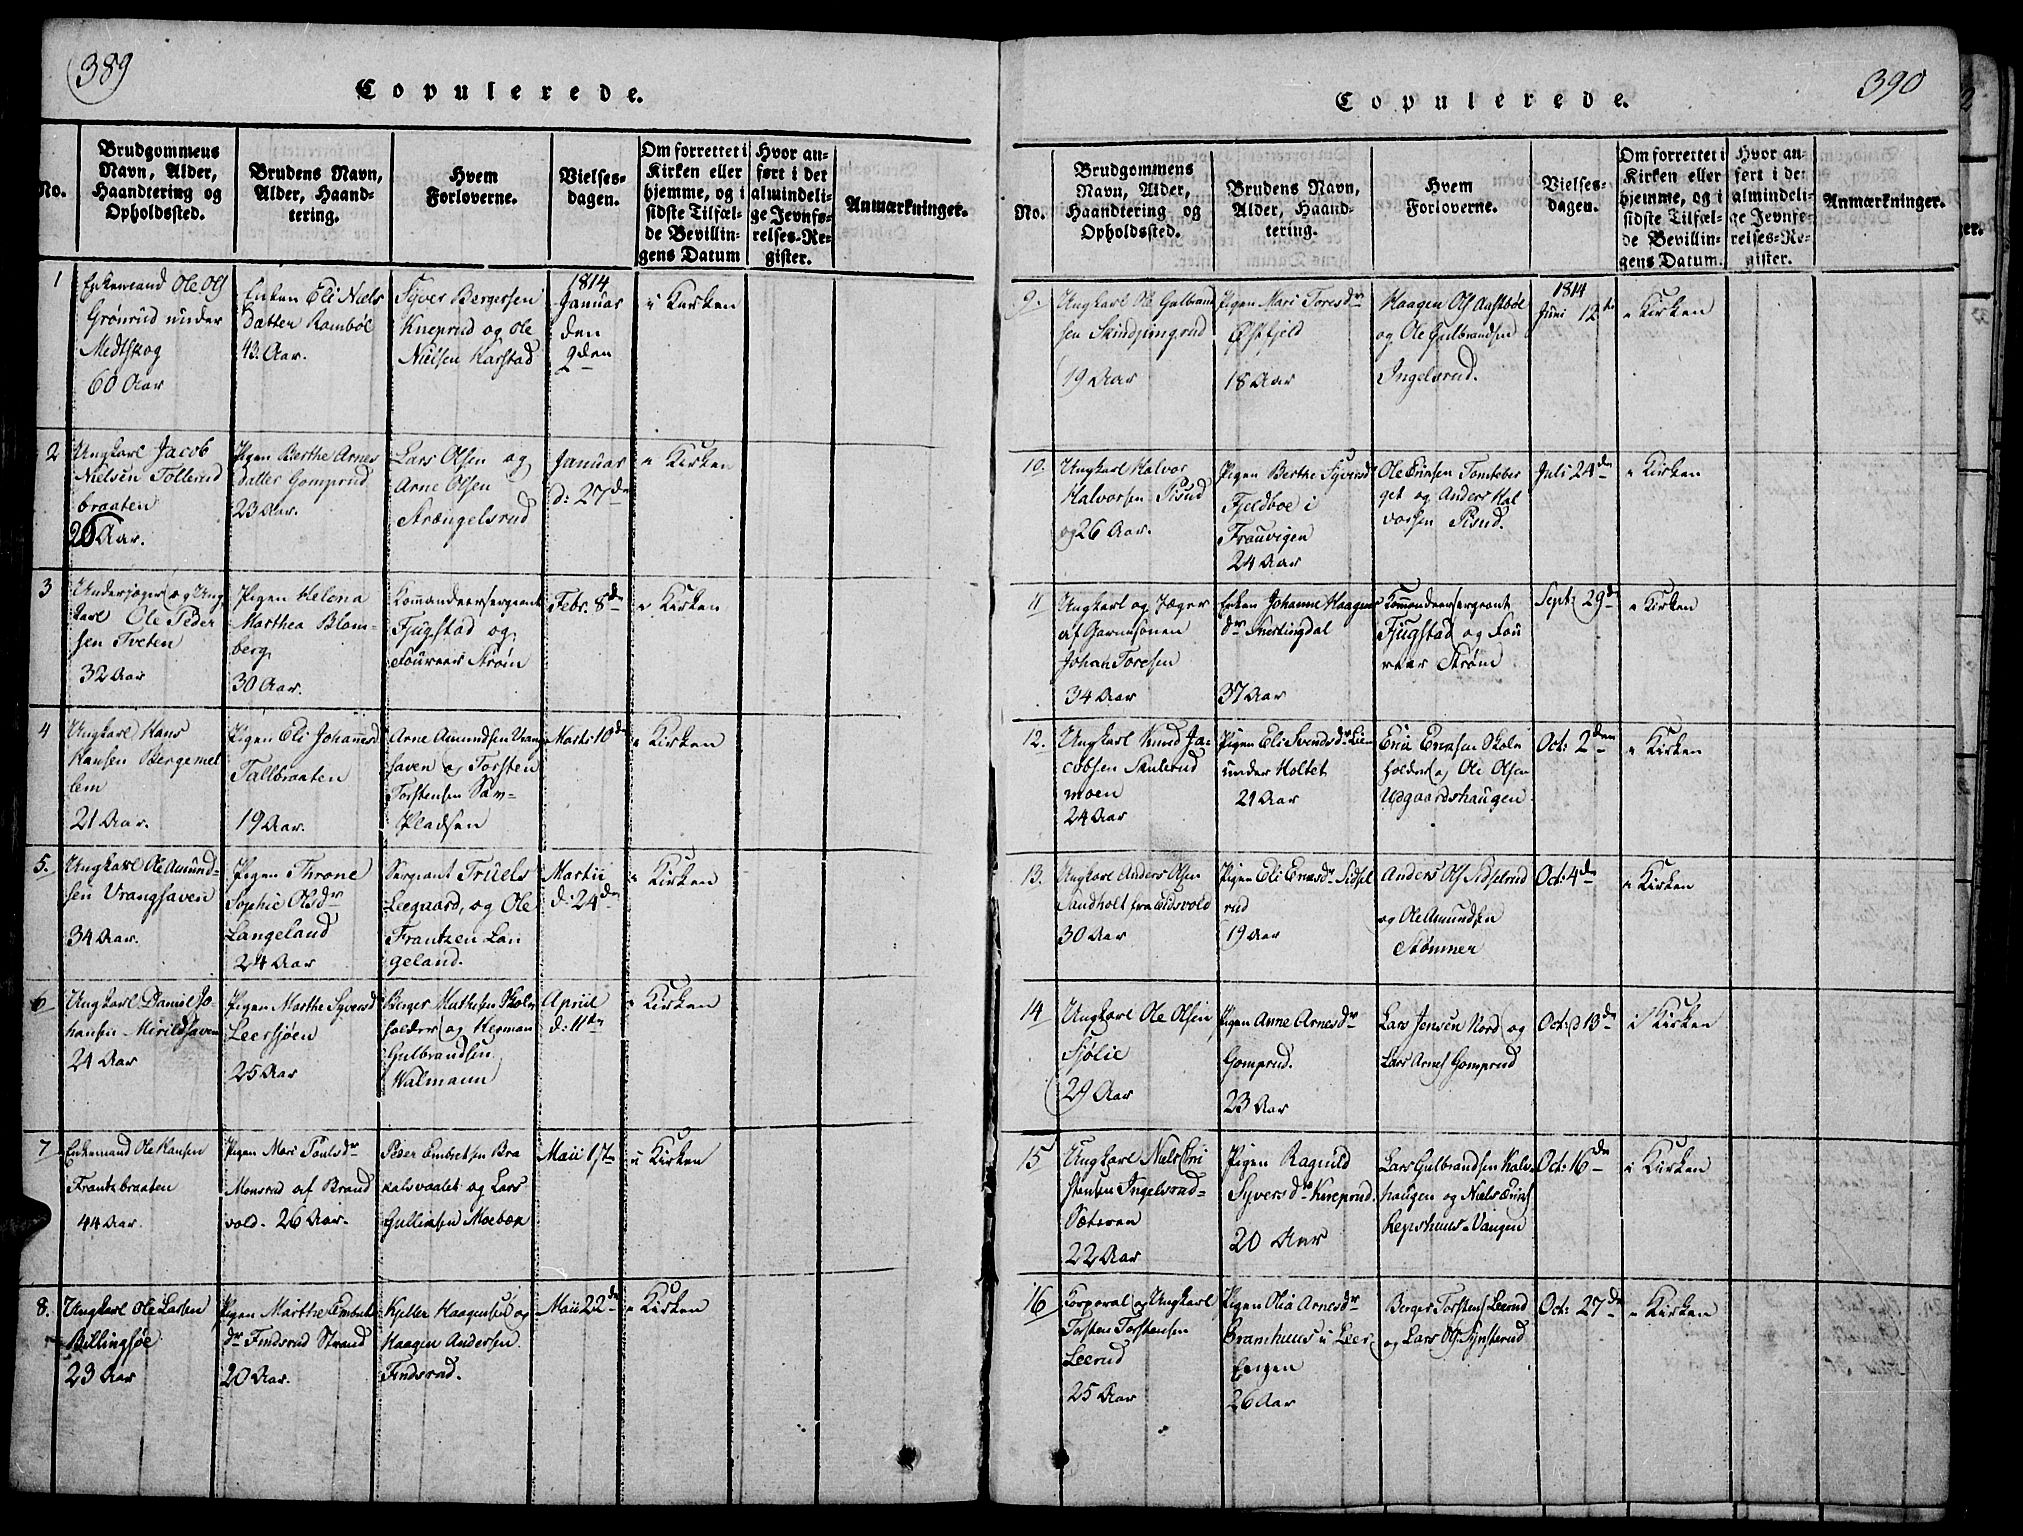 389
Copulerede.
No.
Brudgommens
Navn, Alder,
Haandtering og
Opholdssted.
Brudens Navn,
Alder, Haand-
tering.
Hvem
Forloverne.
Vielses-
dagen.
Om forrettet i
Kirken eller
hjemme, og i
sidste Tilfæl-
de Bevillin-
gens Datum
Hvor an-
ført i det
almindeli-
ge Jevnfø-
relses-Re-
gister.
Anmærkninger.
1
Enkemand Ole Ols
Grönrud under
Medtskog
60 Aar
Enken Eli Niels
Datter Romböe
43. Aar.
Syver Bergersen
Kneprud og Ole
Nielsen Karstad
1814
Januar
den
9den
i Kirken
2
Ungkarl Jacob
Nielsen Tollerud
braaten
26 Aar.
Pigen Berthe Arnes
datter Gomprud
23 Aar.
Lars Olsen og
Arne Olsen
Strængelsrud
Januar
d: 27de
i Kirken
3
Underjæger og Ung
karl Ole Peder
sen Tveten
32 Aar
Pigen Helena
Marthea Blom-
berg
30 Aar.
Kommandeersergeant
Fjugstad og
Foureer Ström
Febr. 8de
i Kirken
4
Ungkarl Hans
Hansen Bergemel
lem
21 Aar.
Pigen Eli Johannesd
Tallbraaten
19 Aar.
Arne Amundsen Vrang
saven og Torsten
Torstensen Sav-
Pladsen
Marti: 10de
i Kirken
5.
Ungkarl Ole Amund-
sen Vrangsaven
34 Aar.
Pigen Throne
Sophie Olsdr
Langeland
24 Aar
Sergeant Truels
Leegaard, og Ole
Frantzen Lan
geland.
Martii
d: 24de
i Kirken
6
Ungkarl Daniel Jo
hansen Mirildsaven
24 Aar
Pigen Marthe Syversd
Leersjöen
25 Aar
Berger Mathisen Skole
holder og Herman
Gulbrandsen
Walmann
April
d: 11de
i Kirken
7
Enkemand Ole Hansen
Frantzbraaten
44 Aar.
Pigen Mari Poulsdr
Monsrud af Brand
vold. 26 Aar.
Peder Embretsen Bra
kalsvaalet og Lars
Gulliksen Moebæk
Maii 17de
i Kirken
8.
Ungkarl Ole Larsen
Billingsöe
23 Aar
Pigen Marthe Embret
dr Findsrud Strand
20 Aar.
Kitter Haagensen og
Haagen Andersen
Findsrud.
Maii 22de
i Kirken
390
Copulerede.
No.
Brudgommens
Navn, Alder,
Haandtering og
Opholdssted.
Brudens Navn,
Alder, Haand-
tering.
Hvem
Forloverne.
Vielses-
dagen.
Om forrettet i
Kirken eller
hjemme, og i
sidste Tilfæl-
de Bevillin-
gens Datum.
Hvor an-
ført i det
almindeli-
ge Jevnfø-
relses-Re-
gister.
Anmærkninger.
9.
Ungkarl Ole Gulbrand
sen Skindjungrud
19 Aar
Pigen Mari Toresdr
Östfjeld
18 Aar
Haagen Ols Aastböe
og Ole Gulbrandsen
Ingelsrud.
1814
Juni 12te
i Kirken
10.
Ungkarl Halvor
Halvorsen Pisud
og 26 Aar.
Pigen Berthe Syversd
Fjeldboe i
Frauvigen
24 Aar
Ole Ersen Tomteber
get og Anders Hal
vorsen Pisud.
Juli 24de
i Kirken
11
Ungkarl og Jæger
af Garnisonen
Johan Toresen
34 Aar
Enken Johanne Haagens
dr Kiertingdal
37 Aar
Kommandeersergeant
Fjugstad og Fou
reer Ström
Sept 29de
i Kirken
12.
Ungkarl Knud Ja-
cobsen Skulerud
moen
24 Aar
Pigen Eli Svendsdr Lien
under Holtet
21 Aar
Eric Ersen Skole
holder og Ole Olsen
Udgaardshaugen
Oct: 2den
i Kirken
13.
Ungkarl Anders Olsen
Sandholt fra Eidsvold
30 Aar
Pigen Eli Ersdr Sidsel
rud
19 Aar
Anders Ols Sidselrud
og Ole Amundsen
Stömner
Oct: 4de
i Kirken
14
Ungkarl Ole Olsen
Sjölie
29 Aar
Pigen Anne Arnesdr
Gomprud.
23 Aar
Lars Jensen Nord og
Lars Arnes Gomprud
Oct: d 13de
i Kirken
15
Ungkarl Niels Chri
stensen Ingelsrud-
Sæteren
22 Aar
Pigen Ragnild
Syversdr Kneprud.
20 Aar
Lars Gulbrandsen Kals
haugen og Niels Erics
Lepshuus-Vangen
Oct: 16de
i Kirken
16
Korporal og Ungkarl
Torsten Torstensen
Leerud
25 Aar
Pigen Olia Arnesdr
Bramhuus i Leer
Engen
26 Aar
Berger Torstens Leerud
og Lars Ols Synsterud
Oct: 27de
i Kirken